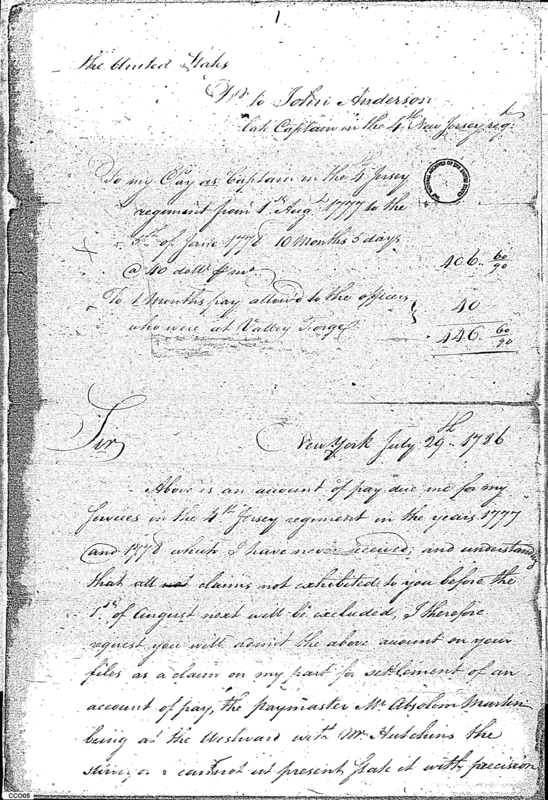 1
The United States
Dr. to John Anderson
late Captain in the 4th New Jersey regt
To my Pay as Captain in the 4 Jersey
regiment from 1st Augt 1777 to the
5th of June 1778 10 months 5 days
@ 40 dolls pr mo. 406 60/90
To 1 months pay allowed to the officers 40
who were at Valley Forge 446 60/90
Sir New York July 29th 1786
Above is an account of pay due me for my
services in the 4th Jersey regiment in the years 1777
and 1778 which I have never received, and understanding
that all not claims not exhibited to you before the
1st of August next will be excluded, I therefore
request you will admit the above account on your
files as a claim on my part for settlement of an
account of pay, the paymaster Mr Absolom Martin
being at the Westward with Mr Hutchins the
cannot at present state it with precision
CCO05